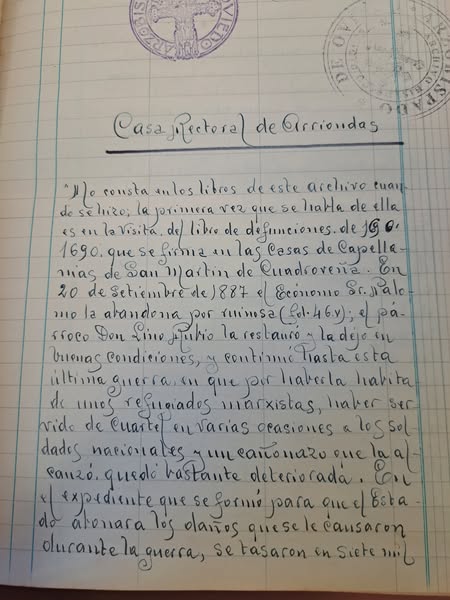 ARZOBIS
OVIEDO
DE OV
ARZOBISPADO
ARCHIVO
Casa Rectoral de Arriondas
"No consta en los libros de este archivo cuan-
do se hizo; la primera vez que se habla de ella
es en la visita del libro de defunciones de
1690. que se firma en las Casas de Capella-
nías de San Martin de Cuadroveña. En
20 de Setiembre de 1887 el Ecónomo Sr. Palo-
mo la abandona por ruinosa (fol. 46v); el pá-
rroco Don Lino Rubio la restauró y la dejó en
buenas condiciones, y continuó hasta esta
última guerra, en que por haberla habita-
do unos refugiados marxistas, haber ser-
vido de Cuartel en varias ocasiones a los sol-
dados nacionales y un cañonazo que la al-
canzó, quedó bastante deteriorada. En
el expediente que se formó para que el Esta-
do abonara los daños que se le causaron
durante la guerra, se tasaron en siete mil